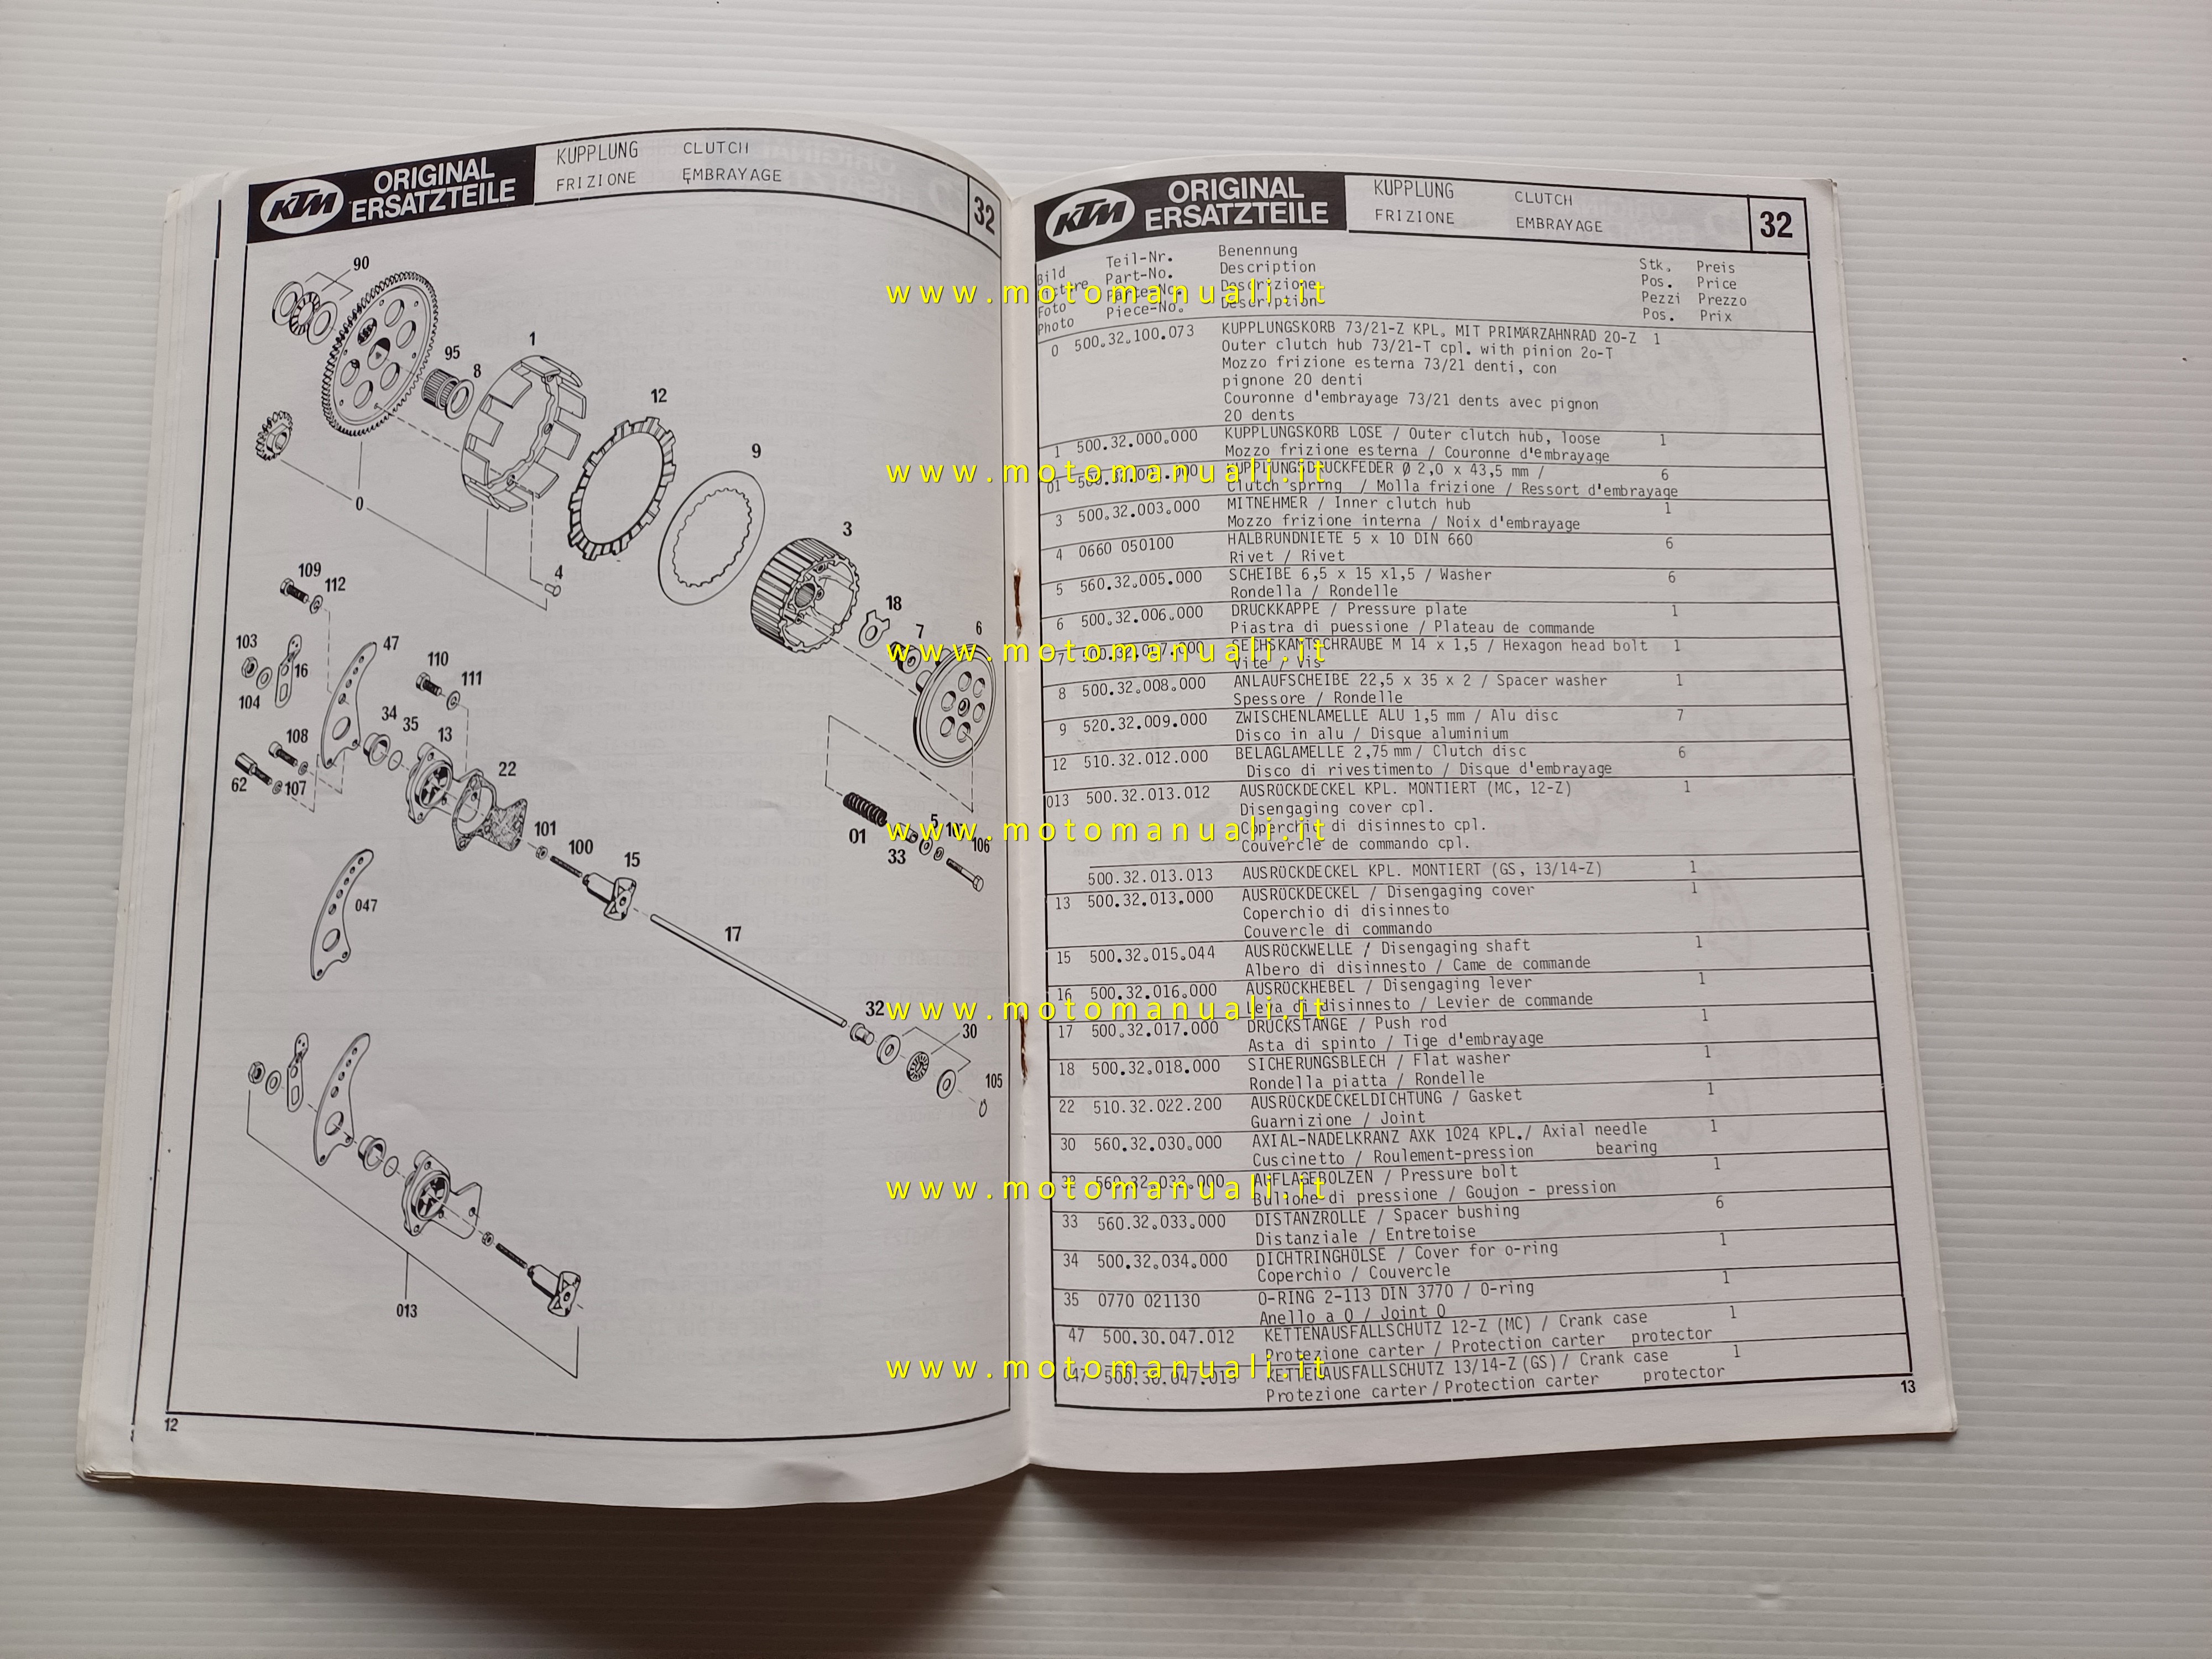 KTM
ORIGINAL
ERSATZTEILE
KUPPLUNG CLUTCH
FRIZIONE EMBRAYAGE
32
90
1
95
8
12
9
0
3
4
109
112
18
7
6
103
16
47
110
111
104
34
35
13
108
22
62
107
101
100
15
01
33
5
106
047
17
32
30
105
013
12
KTM
ORIGINAL
ERSATZTEILE
KUPPLUNG CLUTCH
FRIZIONE EMBRAYAGE
32
Bild Teil-Nr. Benennung Stk. Preis
Part-No. Description Pos. Price
Foto Descrizione Pezzi Prezzo
Photo Piece-No. Description Pos. Prix
0 500.32.100.073 KUPPLUNGSKORB 73/21-Z KPL. MIT PRIMÄRZAHNRAD 20-Z 1
Outer clutch hub 73/21-T cpl. with pinion 2o-T
Mozzo frizione esterna 73/21 denti, con
pignone 20 denti
Couronne d'embrayage 73/21 dents avec pignon
20 dents
1 500.32.000.000 KUPPLUNGSKORB LOSE / Outer clutch hub, loose 1
Mozzo frizione esterna / Couronne d'embrayage
01 KUPPLUNGSDRUCKFEDER Ø 2,0 x 43,5 mm / 6
Clutch spring / Molla frizione / Ressort d'embrayage
3 500.32.003.000 MITNEHMER / Inner clutch hub 1
Mozzo frizione interna / Noix d'embrayage
4 0660 050100 HALBRUNDNIETE 5 x 10 DIN 660 6
Rivet / Rivet
5 560.32.005.000 SCHEIBE 6,5 x 15 x1,5 / Washer 6
Rondella / Rondelle
6 500.32.006.000 DRUCKKAPPE / Pressure plate 1
Piastra di puessione / Plateau de commande
7 SECHSKANTSCHRAUBE M 14 x 1,5 / Hexagon head bolt 1
Vite / Vis
8 500.32.008.000 ANLAUFSCHEIBE 22,5 x 35 x 2 / Spacer washer 1
Spessore / Rondelle
9 520.32.009.000 ZWISCHENLAMELLE ALU 1,5 mm / Alu disc 7
Disco in alu / Disque aluminium
12 510.32.012.000 BELAGLAMELLE 2,75 mm / Clutch disc 6
Disco di rivestimento / Disque d'embrayage
013 500.32.013.012 AUSRÜCKDECKEL KPL. MONTIERT (MC, 12-Z) 1
Disengaging cover cpl.
Coperchio di disinnesto cpl.
Couvercle de commando cpl.
500.32.013.013 AUSRÜCKDECKEL KPL. MONTIERT (GS, 13/14-Z) 1
13 500.32.013.000 AUSRÜCKDECKEL / Disengaging cover 1
Coperchio di disinnesto
Couvercle di commando
15 500.32.015.044 AUSRÜCKWELLE / Disengaging shaft 1
Albero di disinnesto / Came de commande
16 500.32.016.000 AUSRÜCKHEBEL / Disengaging lever 1
Leva di disinnesto / Levier de commande
17 500.32.017.000 DRUCKSTANGE / Push rod 1
Asta di spinto / Tige d'embrayage
18 500.32.018.000 SICHERUNGSBLECH / Flat washer 1
Rondella piatta / Rondelle
22 510.32.022.200 AUSRÜCKDECKELDICHTUNG / Gasket 1
Guarnizione / Joint
30 560.32.030.000 AXIAL-NADELKRANZ AXK 1024 KPL./ Axial needle 1
Cuscinetto / Roulement-pression bearing
32 560.32.032.000 AUFLAGEBOLZEN / Pressure bolt 1
Bullone di pressione / Goujon - pression
33 560.32.033.000 DISTANZROLLE / Spacer bushing 6
Distanziale / Entretoise
34 500.32.034.000 DICHTRINGHÜLSE / Cover for o-ring 1
Coperchio / Couvercle
35 0770 021130 O-RING 2-113 DIN 3770 / O-ring 1
Anello a O / Joint O
47 500.30.047.012 KETTENAUSFALLSCHUTZ 12-Z (MC) / Crank case 1
Protezione carter / Protection carter protector
047 500.30.047.013 KETTENAUSFALLSCHUTZ 13/14-Z (GS) / Crank case 1
Protezione carter / Protection carter protector
13
www.motomanuali.it
www.motomanuali.it
www.motomanuali.it
www.motomanuali.it
www.motomanuali.it
www.motomanuali.it
www.motomanuali.it